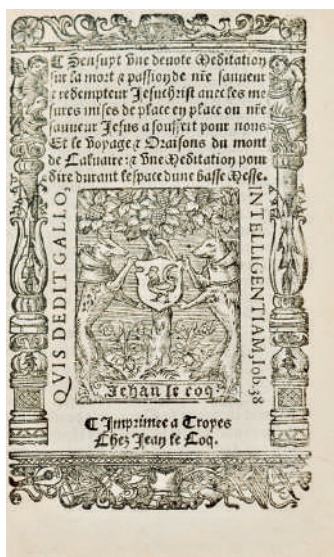 ⁋ Sensuyt vne deuote Meditation
sur la mort & passion de nr̃e sauueur
& redempteur Jesuchrist auec les me
sures mises de place en place ou nr̃e
sauueur Jesus a souffrit pour nous
Et le Voyage & Oraisons du mont
de Caluaire: & vne Meditation pour
dire durant lespace dune basse Messe.
QVIS DEDIT GALLO,
INTELLIGENTIAM, Iob. 38
Jehan le coq
⁋ Imprimee a Troyes
Chez Jean le Coq.